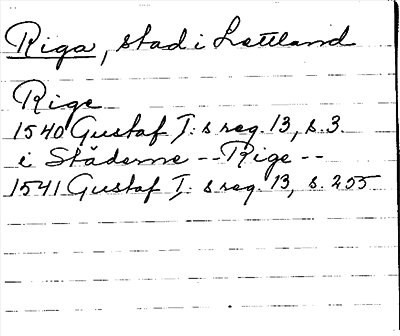 Riga, stad i Lettland
Rige
1540 Gustaf I: s reg. 13, s. 3.
i Städerne -- Rige --
1541 Gustaf I: s reg. 13, s. 255